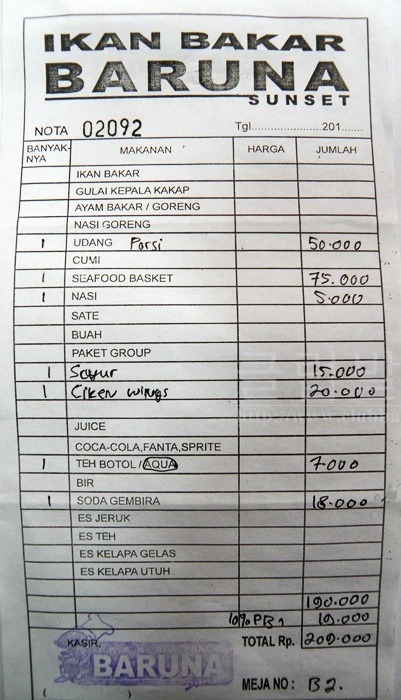 IKAN BAKAR
BARUNA
SUNSET
NOTA 02092 Tgl.......................201.......
BANYAK-NYA MAKANAN HARGA JUMLAH
IKAN BAKAR
GULAI KEPALA KAKAP
AYAM BAKAR / GORENG
NASI GORENG
1 UDANG Porsi 50.000
CUMI
1 SEAFOOD BASKET 75.000
1 NASI 5.000
SATE
BUAH
PAKET GROUP
1 Sayur 15.000
1 Ciken wings 20.000
JUICE
COCA-COLA,FANTA,SPRITE
1 TEH BOTOL / AQUA 7.000
BIR
1 SODA GEMBIRA 18.000
ES JERUK
ES TEH
ES KELAPA GELAS
ES KELAPA UTUH
190.000
10% PB1 19.000
KASIR, TOTAL Rp. 209.000
BARUNA
MEJA NO : B2.
( )